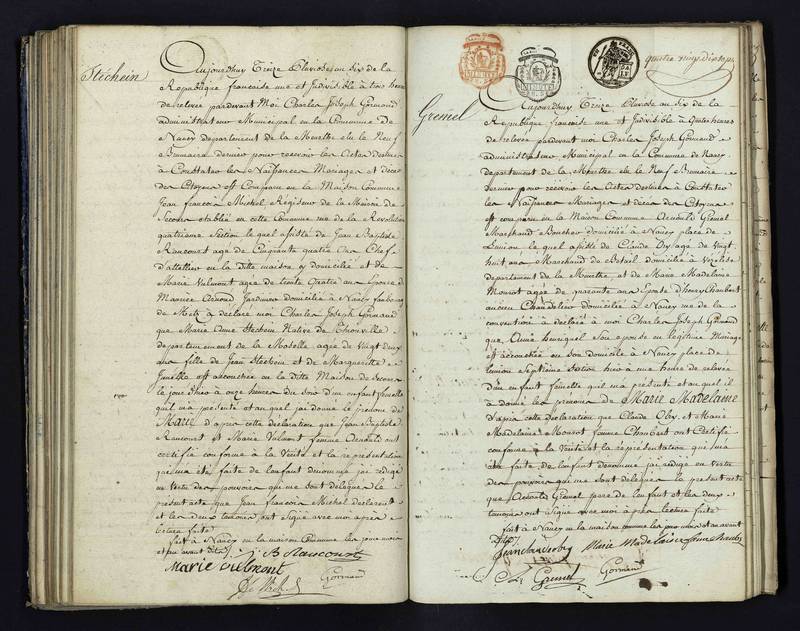 Stéchein
Aujourdhuy Treize Pluviose an six de la
Republique francoise une et Indivisible à trois heures
de relevée pardevant Moi Charles Joseph Gormand
administrateur Municipal en la Commune De
Nancy departement de la Meurthe élu le Neuf
Brumaire dernier pour recevoir les Actes destinés
à Constater les Naissances Mariages et décès
des Citoyens est Comparu en la Maison Commune
Jean francois Michel Régisseur de la Maison de
Secours etablie en cette Commune rue de la Revolution
quatrieme Section lequel assisté de Jean Baptiste
Rancourt agé de Cinquante quatre ans Chef
d'attellier en la ditte maison y domicilié et de
Marie Vulmont agée de trente quatre ans Epouse d
Arnould Jardinier domicilié à Nancy faubourg
de Metz à déclaré à moi Charles Joseph Gormand
que Marie Anne Stechein Native de Thionville
departement de la Moselle agée de vingt deux
ans fille de Jean Stechein et de Marguerite
est accouchée en la ditte Maison de Secours
le jour d'hier à onze heures du soir d'un enfant femelle
qu'il m'a présenté et auquel j'ai donné le prénom de
Marie d'après cette déclaration que Jean Baptiste
Rancourt et Marie Vulmont femme Arnould ont
certifié conforme à la Vérité et la représentation
qui m'a été faite de l'enfant dénommé j'ai rédigé
en vertu des pouvoirs qui me sont délégués le
présent acte que Jean francois Michel déclarant
et les deux temoins ont Signé avec moi après
lecture faite
fait à Nancy en la maison commune les jour mois
et an avant dits
J B Rancourt
Marie Vulmont
Gormand
quatre vingt dix sept
Gremel
Aujourdhuy Treize Pluviose an six de la
Republique francoise une et Indivisible à Quatre heures
de relevée pardevant moi Charles Joseph Gormand
administrateur Municipal en la Commune de Nancy
departement de la Meurthe élu le Neuf Brumaire
dernier pour recevoir les Actes destinés à Constater
les Naissances Mariages et décès des Citoyens
est comparu en la Maison Commune Arnould Gremel
Marchand Boucher domicilié à Nancy place de
l'union lequel assisté de Claude agé de vingt
huit ans Marchand de Betail domicilié à
departement de la Meurthe et de Marie Madelaine
Monrot agée de quarante ans Epouse d'henry Chaubert
ancien Chandelier domicilié à Nancy rue de la
convention à déclaré à moi Charles Joseph Gormand
que Anne son epouse en légitime Mariage
est accouchée en son domicile à Nancy place de
l'union Septieme Section hier à une heure de relevée
d'un enfant femelle qu'il m'a présenté et auquel il
à donné les prenoms de Marie Madelaine
d'après cette déclaration que Claude et Marie
Madelaine Monrot femme Chaubert ont Certifié
conforme à la Vérité et la réprésentation qui m'a
été faite de l'enfant dénommé j'ai rédigé en vertu
des pouvoirs qui me sont délégués le présent acte
que Arnould Gremel pere de l'enfant et les deux
temoins ont Signé avec moi après lecture faite
fait à Nancy en la maison commune les jour mois et an avant
dits
Marie Madelaine femme Chaubert
Gremel
Gormand